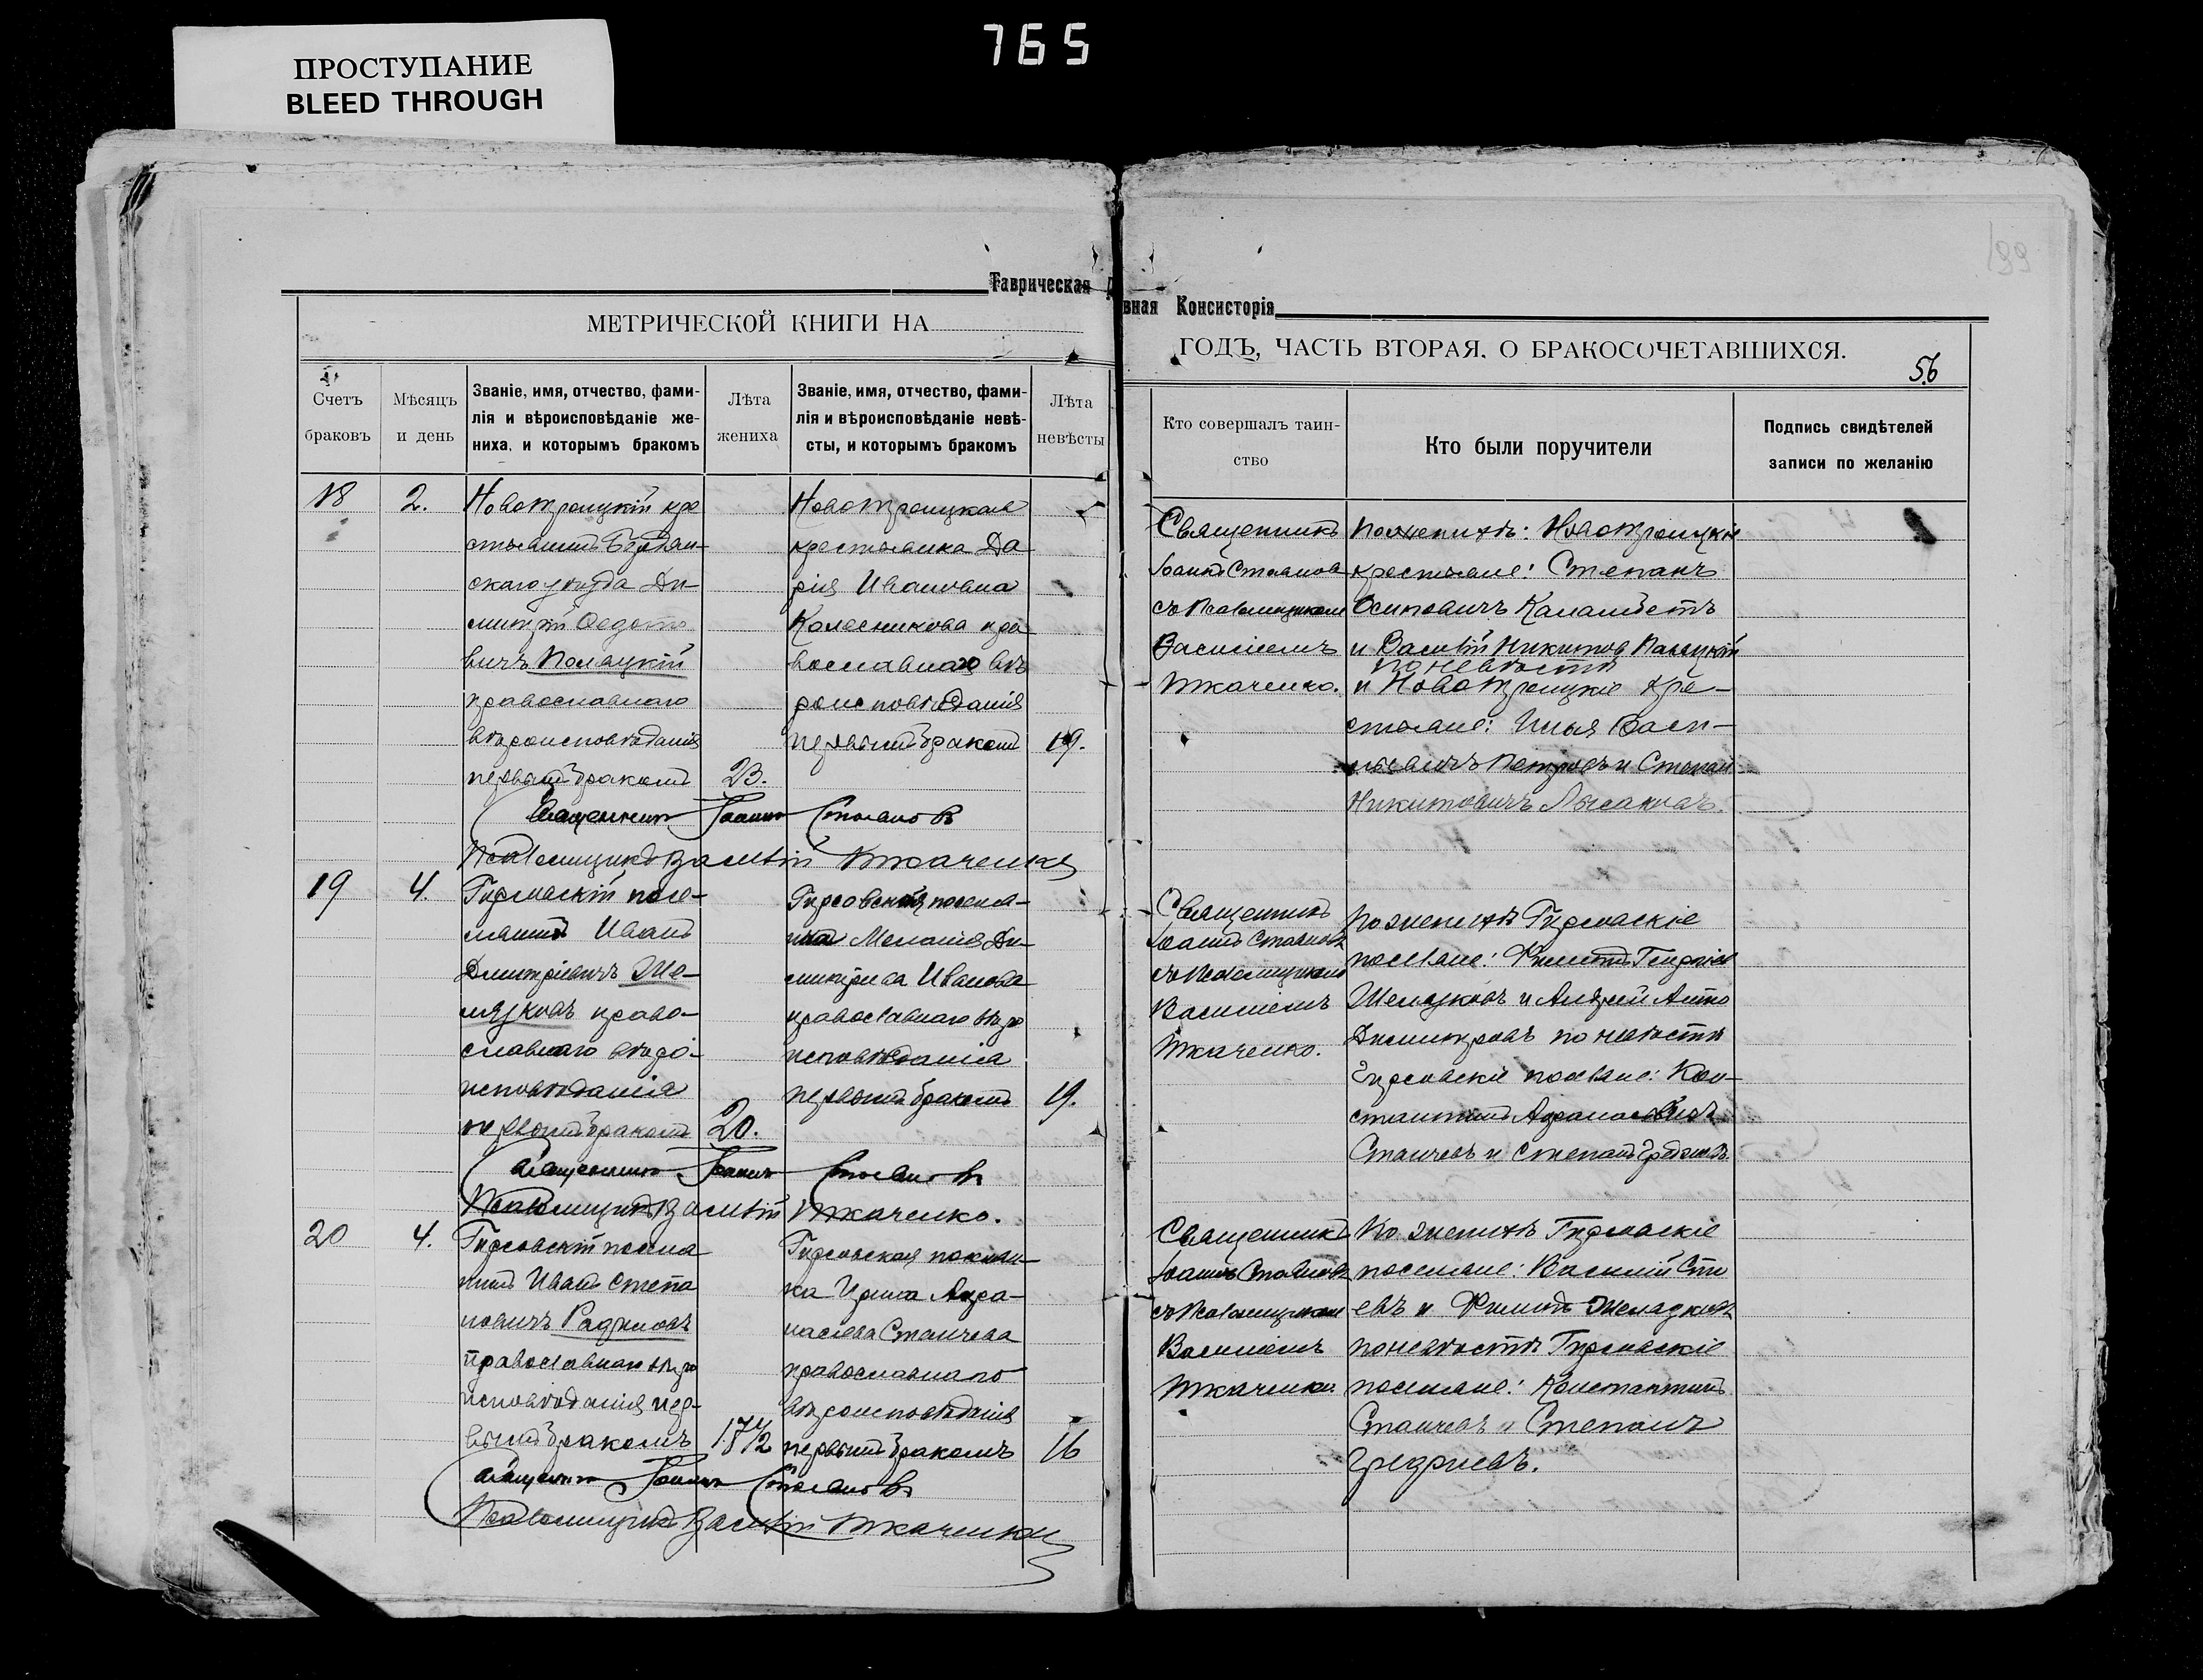 765
ПРОСТУПАНИЕ
BLEED THROUGH
199
Таврическая Д
вная Консисторія
МЕТРИЧЕСКОЙ КНИГИ НА
ГОДЪ, ЧАСТЬ ВТОРАЯ, О БРАКОСОЧЕТАВШИХСЯ.
56
Счетъ
браковъ
Мѣсяцъ
и день
Званіе, имя, отчество, фами-
лія и вѣроисповѣданіе же-
ниха, и которымъ бракомъ
Лѣта
жениха
Званіе, имя, отчество, фами-
лія и вѣроисповѣданіе невѣ-
сты, и которымъ бракомъ
Лѣта
невѣсты
Кто совершалъ таин-
ство
Кто были поручители
Подпись свидѣтелей
записи по желанію
18
2.
Новотроицкій кре
стьянинъ Бердян-
скаго уѣзда Ди-
митрій Федото
вичъ Полацкій
православнаго
вѣроисповѣданія
первымъ бракомъ
23.
Новотроицкая
крестьянка Да
рія Иванова
Колесникова пра
вославнаго вѣ
роисповѣданія
первымъ бракомъ
19.
Священникъ
Іоаннъ Стоянов
съ Псаломщикомъ
Василіемъ
Ткаченко.
По женихѣ: Новотроицкіе
крестьяне: Степанъ
Осиповичъ
и Василій Никитов Палацкій
по невѣстѣ
и Новотроицкіе кре-
стьяне: Илья Васи-
льевичъ Петровъ и Степан
Никитовичъ
Священникъ Іоаннъ Стояновъ
Псаломщикъ Василій Ткаченко
19
4.
Гирсовскій посе-
лянинъ Иванъ
Дмитріевичъ Же-
лязковъ право-
славнаго вѣро-
исповѣданія
первымъ бракомъ
20.
Гирсовская поселя-
нка Меланія Ди-
митріева Иванова
православнаго вѣро
исповѣданія
первымъ бракомъ
19.
Священникъ
Іоаннъ Стояновъ
съ Псаломщикомъ
Василіемъ
Ткаченко.
По женихѣ Гирсовскіе
поселяне: Филиппъ Георгіев
Желязковъ и Андрей
Димитровъ по невѣстѣ
Гирсовскіе поселяне: Кон-
стантинъ Афанасьевъ
Станчевъ и Степанъ
Священникъ Іоаннъ Стояновъ
Псаломщикъ Василій Ткаченко.
20
4.
Гирсовскій поселя
нинъ Иванъ Степа
новичъ
православнаго вѣро
исповѣданія пер-
вымъ бракомъ
17 1/2
Гирсовская поселян-
ка Ирина Афа-
насіева Станчева
православнаго
вѣроисповѣданія
первымъ бракомъ
16
Священникъ
Іоаннъ Стояновъ
съ Псаломщикомъ
Василіемъ
Ткаченко.
По женихѣ Гирсовскіе
поселяне: Василій
евъ и Филиппъ Желязковъ
по невѣстѣ Гирсовскіе
поселяне: Константинъ
Станчевъ и Степанъ
Священникъ Іоаннъ Стояновъ
Псаломщикъ Василій Ткаченко